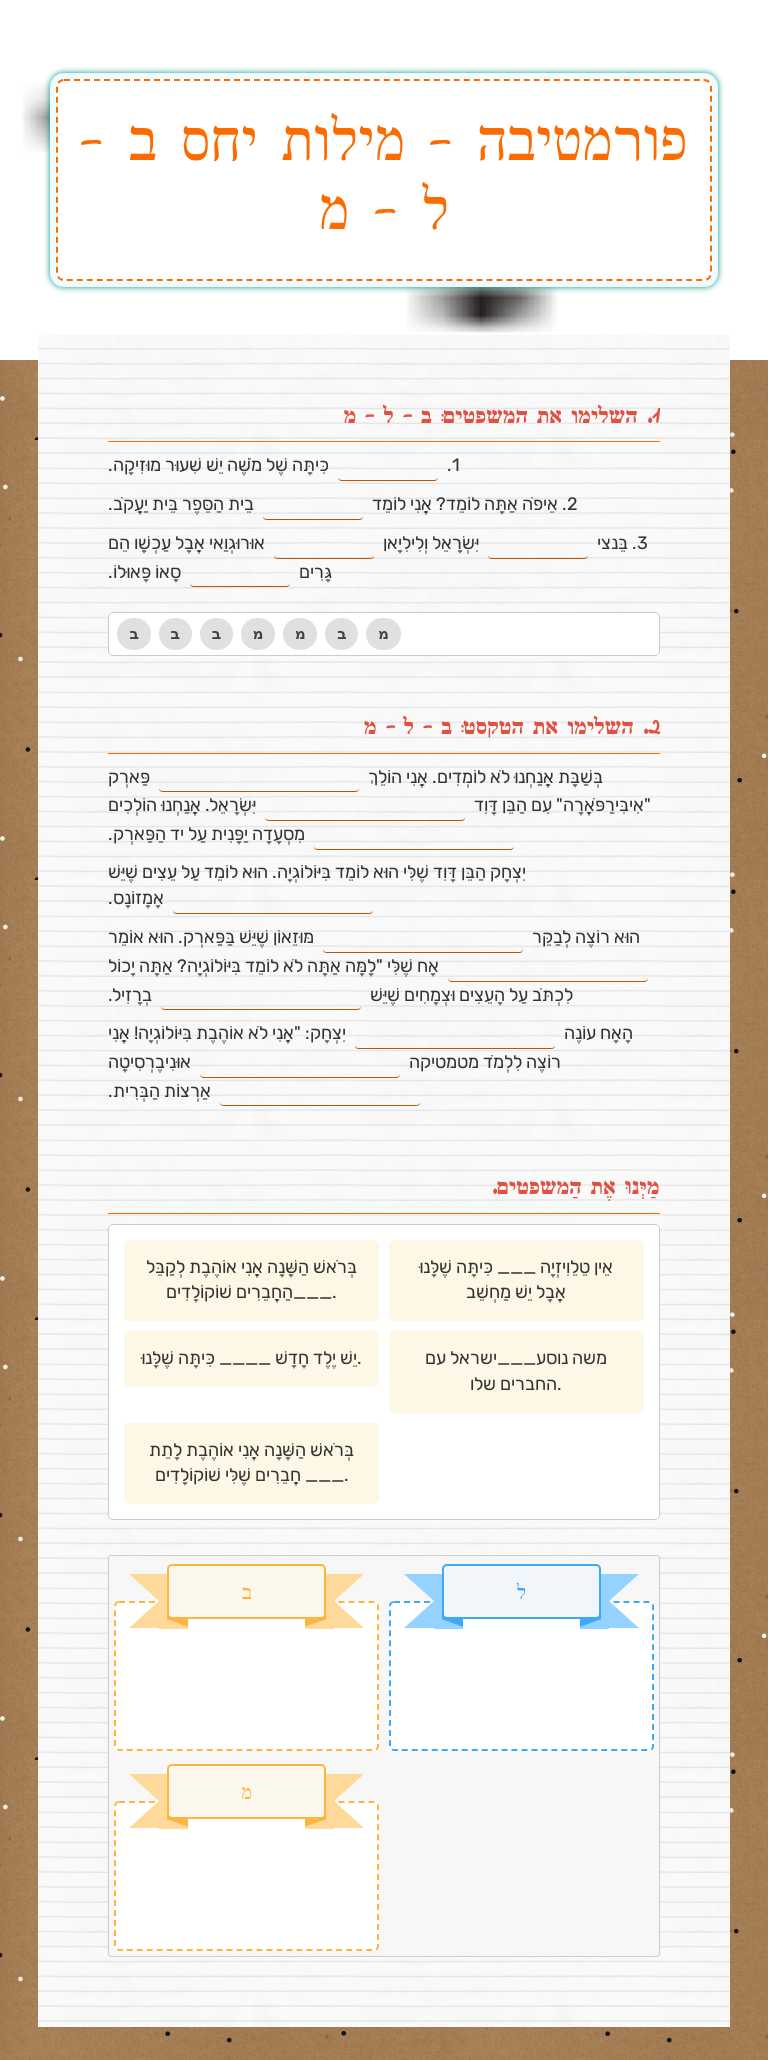 פורמטיבה - מילות יחס ב -
ל - מ
1. השלימו את המשפטים: ב - ל - מ
1. ________ כִּיתָּה שֶׁל מֹשֶׁה יֵשׁ שִׁעוּר מוּזִיקָה.
2. אֵיפֹה אַתָּה לוֹמֵד? אֲנִי לוֹמֵד ________ בֵית הַסֵפֶר בֵּית יַעֲקֹב.
3. בֵּנצי ________ יִשְׂרָאֵל וְלִילִיָאן ________ אוּרוּגְוַאי אֲבָל עַכְשָׁו הֵם
גָּרִים ________ סָאוֹ פָּאוּלוֹ.
ב ב ב מ מ ב מ
2. השלימו את הטקסט: ב - ל - מ
בְּשַׁבָּת אֲנַחְנוּ לֹא לוֹמְדִים. אֲנִי הוֹלֵךְ ________ פַּארְק
"אִיבִּירַפֹּאֶרָה" עִם הַבֵּן דָּוִד ________ יִשְׂרָאֵל. אֲנַחְנוּ הוֹלְכִים
________ מִסְעָדָה יַפָּנִית עַל יד הַפַּארְק.
יִצְחָק הַבֵּן דָּוִד שֶׁלִּי הוּא לוֹמֵד בִּיּוֹלוֹגְיָה. הוּא לוֹמֵד עַל עֵצִים שֶׁיֵּשׁ
________ אָמָזוֹנָס.
הוּא רוֹצֶה לְבַקֵּר ________ מוּזֵאוֹן שֶׁיֵּשׁ בַּפַּארְק. הוּא אוֹמֵר
________ אָח שֶׁלִּי "לָמָּה אַתָּה לֹא לוֹמֵד בִּיּוֹלוֹגְיָה? אַתָּה יָכוֹל
לִכְתֹּב עַל הָעֵצִים וּצְמָחִים שֶׁיֵּשׁ ________ בְּרָזִיל.
הָאָח עוֹנֶה ________ יִצְחָק: "אֲנִי לֹא אוֹהֶבֶת בִּיּוֹלוֹגְיָה! אֲנִי
רוֹצֶה לִלְמֹד מטמטיקה ________ אוּנִיבֶרְסִיטָה
________ אַרְצוֹת הַבְּרִית.
מַיְּנוּ אֶת הַמִשפטים.
אֵין טֵלֵוִיזְיָה ___ כִּיתָּה שֶׁלָּנוּ
אֲבָל יֵשׁ מַחְשֵׁב
בְּרֹאשׁ הַשָּׁנָה אֲנִי אוֹהֶבֶת לְקַבֵּל
___הַחֲבֵרִים שׁוֹקוֹלָדִים.
משה נוסע___ישראל עם
החברים שלו.
יֵשׁ יֶלֶד חָדָשׁ ____ כִּיתָּה שֶׁלָּנוּ.
בְּרֹאשׁ הַשָּׁנָה אֲנִי אוֹהֶבֶת לָתֵת
___ חֲבֵרִים שֶׁלִּי שׁוֹקוֹלָדִים.
ל
ב
מ